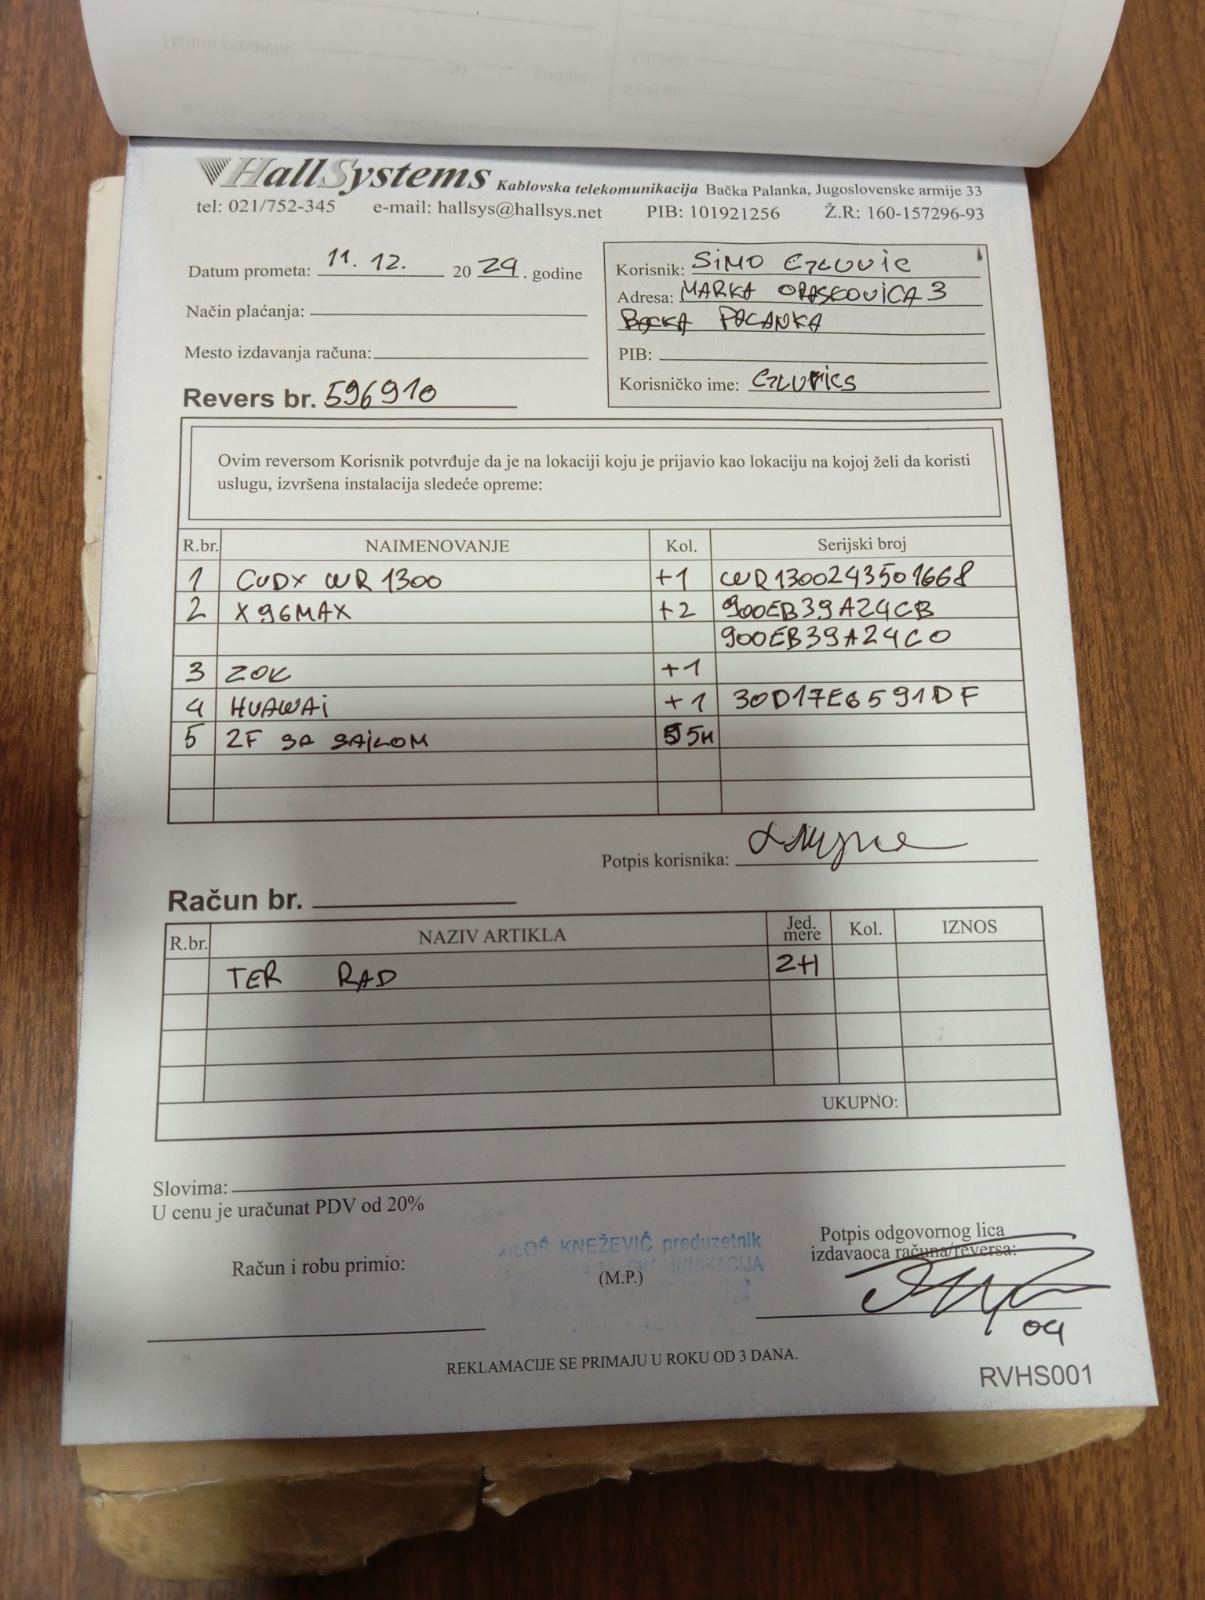 HallSystems Kablovska telekomunikacija Bačka Palanka, Jugoslovenske armije 33
tel: 021/752-345 e-mail: hallsys@hallsys.net PIB: 101921256 Ž.R: 160-157296-93
Datum prometa: 11. 12. 20 24. godine
Način plaćanja:
Mesto izdavanja računa:
Revers br. 596910
Korisnik: SIMO
Adresa: MARKA ORASKOVICA 3
BACKA PALANKA
PIB:
Korisničko ime:
Ovim reversom Korisnik potvrđuje da je na lokaciji koju je prijavio kao lokaciju na kojoj želi da koristi
uslugu, izvršena instalacija sledeće opreme:
R.br. NAIMENOVANJE Kol. Serijski broj
1 CUDY WR 1300 +1 WR1300243501668
2 X96MAX +2 900EB39A24CB
900EB39A24C0
3 ZOK +1
4 HUAWAi +1 30D17E6591DF
5 2F SA SAJLOM 55M
Potpis korisnika:
Račun br.
R.br. NAZIV ARTIKLA Jed. mere Kol. IZNOS
TER RAD 2H
UKUPNO:
Slovima:
U cenu je uračunat PDV od 20%
Račun i robu primio:
MILOŠ KNEŽEVIĆ preduzetnik
(M.P.)
Potpis odgovornog lica
izdavaoca računa/reversa:
04
REKLAMACIJE SE PRIMAJU U ROKU OD 3 DANA.
RVHS001